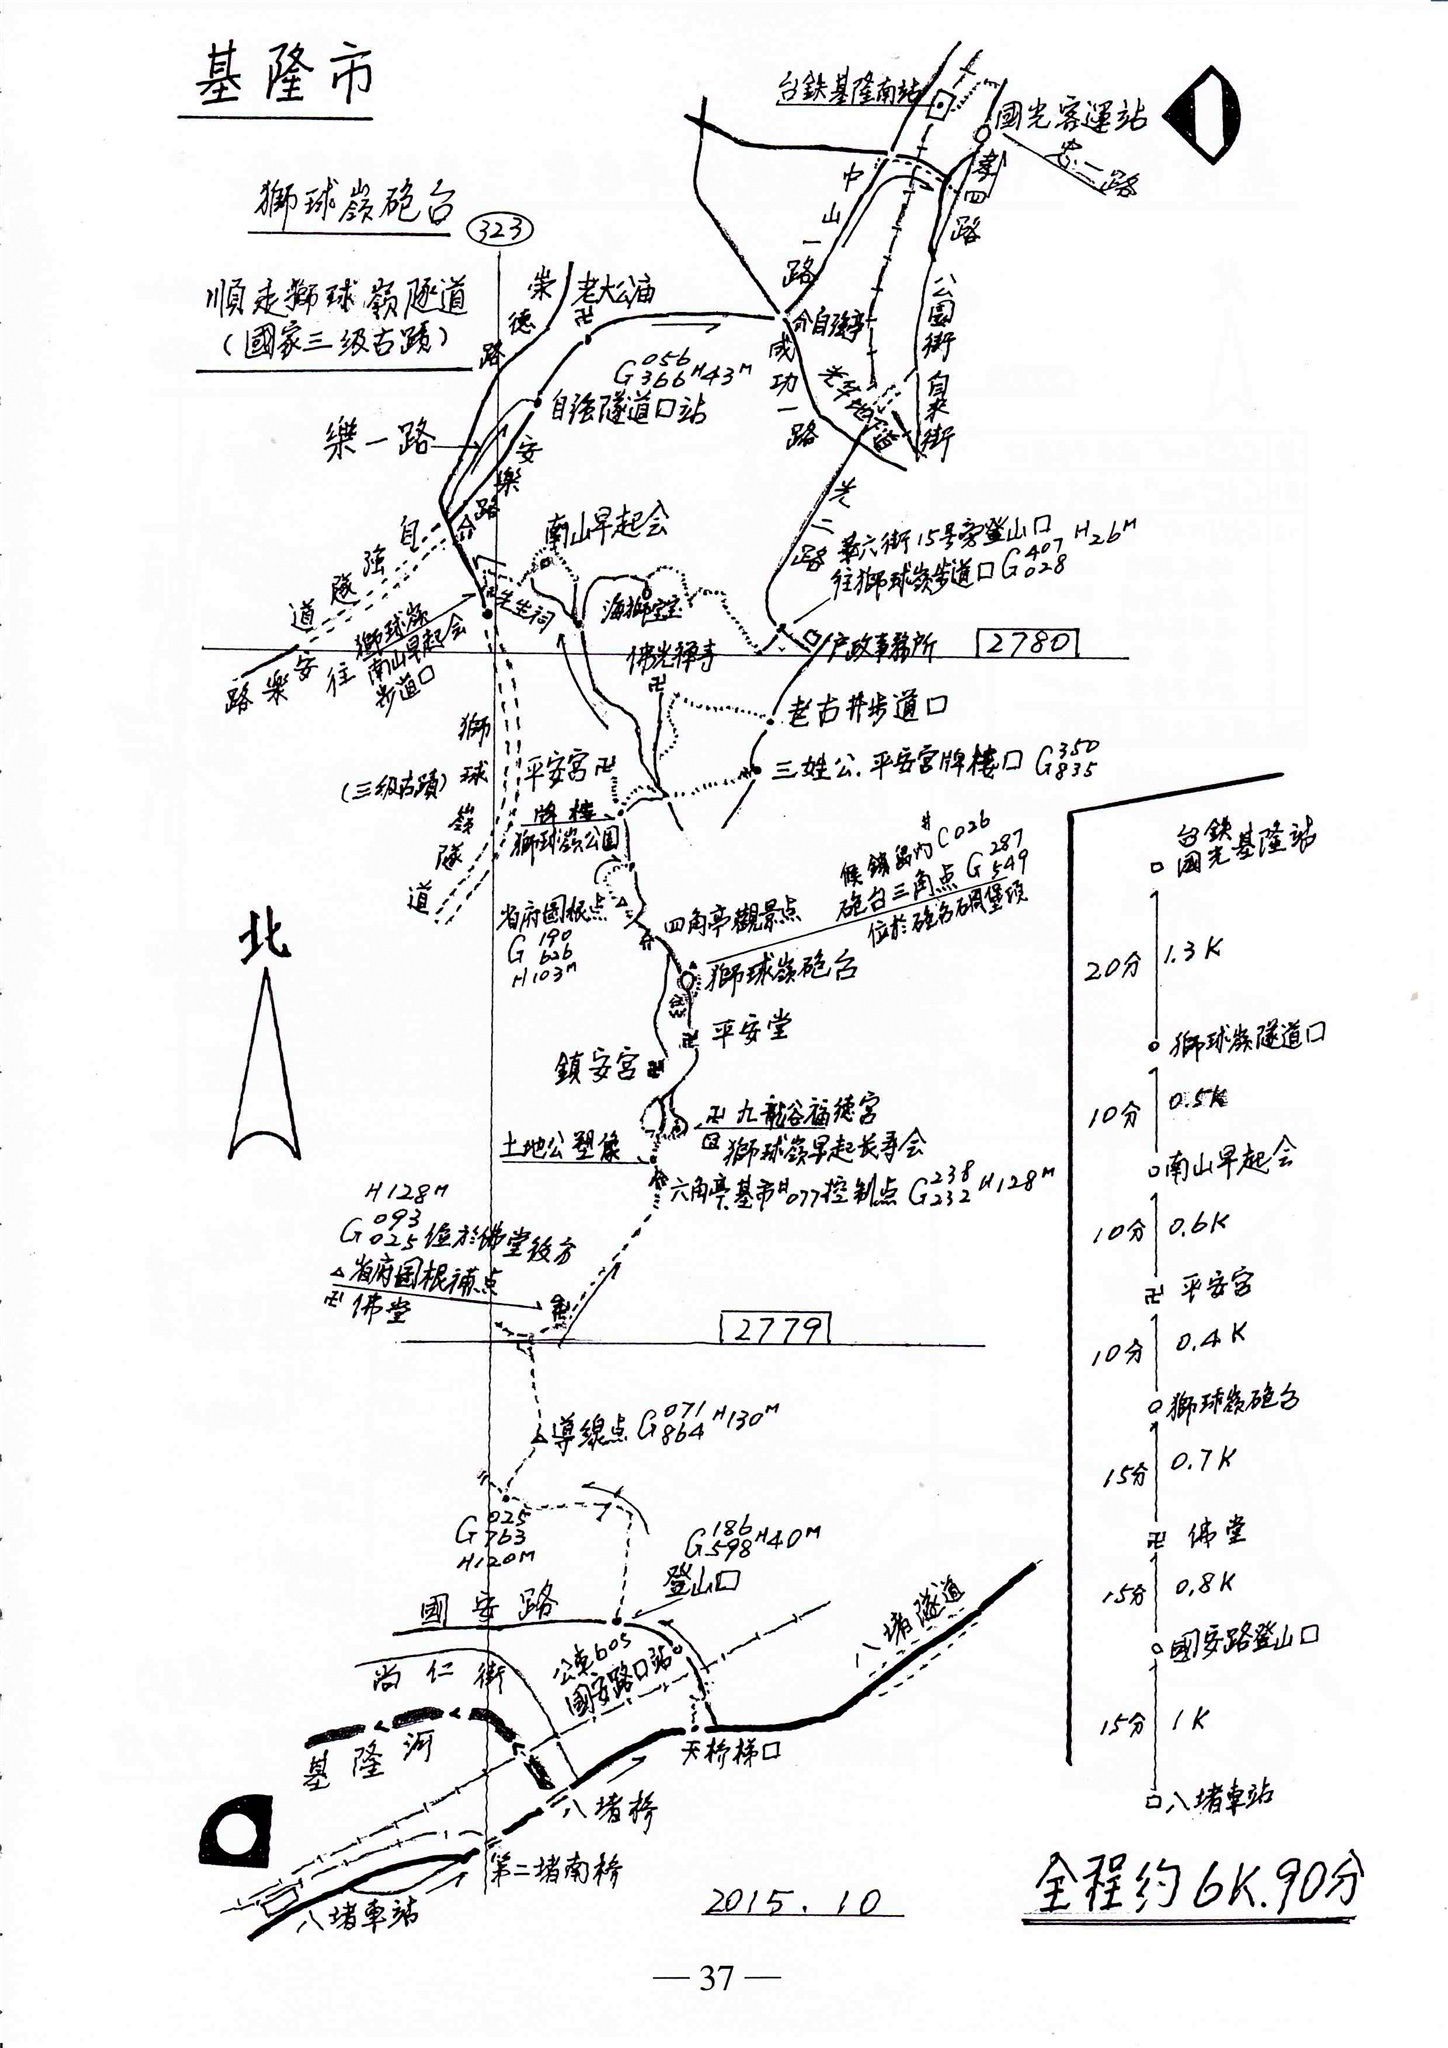 基隆市
獅球嶺砲台
順走獅球嶺隧道
(國家三級古蹟)
323
台鉄基隆南站
國光客運站
忠二路
孝四路
中山一路
公園街
自來街
崇德路
老大公庙
G056 366 H43M
自強隧道口站
自強亭
成功一路
樂一路
安樂路
光二路
南山早起会
自強隧道
安樂路
先生祠
往獅球嶺
南山早起会
步道口
海獅窒
佛光禅寺
義六街15号旁登山口
往獅球嶺步道口G407 028 H26M
户政事務所
2780
老古井步道口
三姓公.平安宮牌樓口G350 835
平安宮
牌樓
獅球嶺公园
(三级古蹟)
獅球嶺隧道
省府图根点
G190 626
H103M
四角亭觀景点
C026
砲台三角点G287 549
獅球嶺砲台
平安堂
鎮安宮
九龍谷福德宮
獅球嶺早起长寿会
土地公塑像
六角亭.基市H077控制点G238 232 H128M
北
H128M
G093 025位於佛堂後方
省府图根補点
佛堂
2779
導線点G071 864 H130M
G025 763
H120M
G186 598 H40M
登山口
國安路
公車605
國安路口站
尚仁街
八堵隧道
基隆河
天桥梯口
八堵桥
第二堵南桥
八堵車站
台鉄
國光基隆站
20分 1.3K
獅球嶺隧道口
10分 0.5K
南山早起会
10分 0.6K
平安宮
10分 0.4K
獅球嶺砲台
15分 0.7K
佛堂
15分 0.8K
國安路登山口
15分 1K
八堵車站
全程約6K.90分
2015.10
—37—